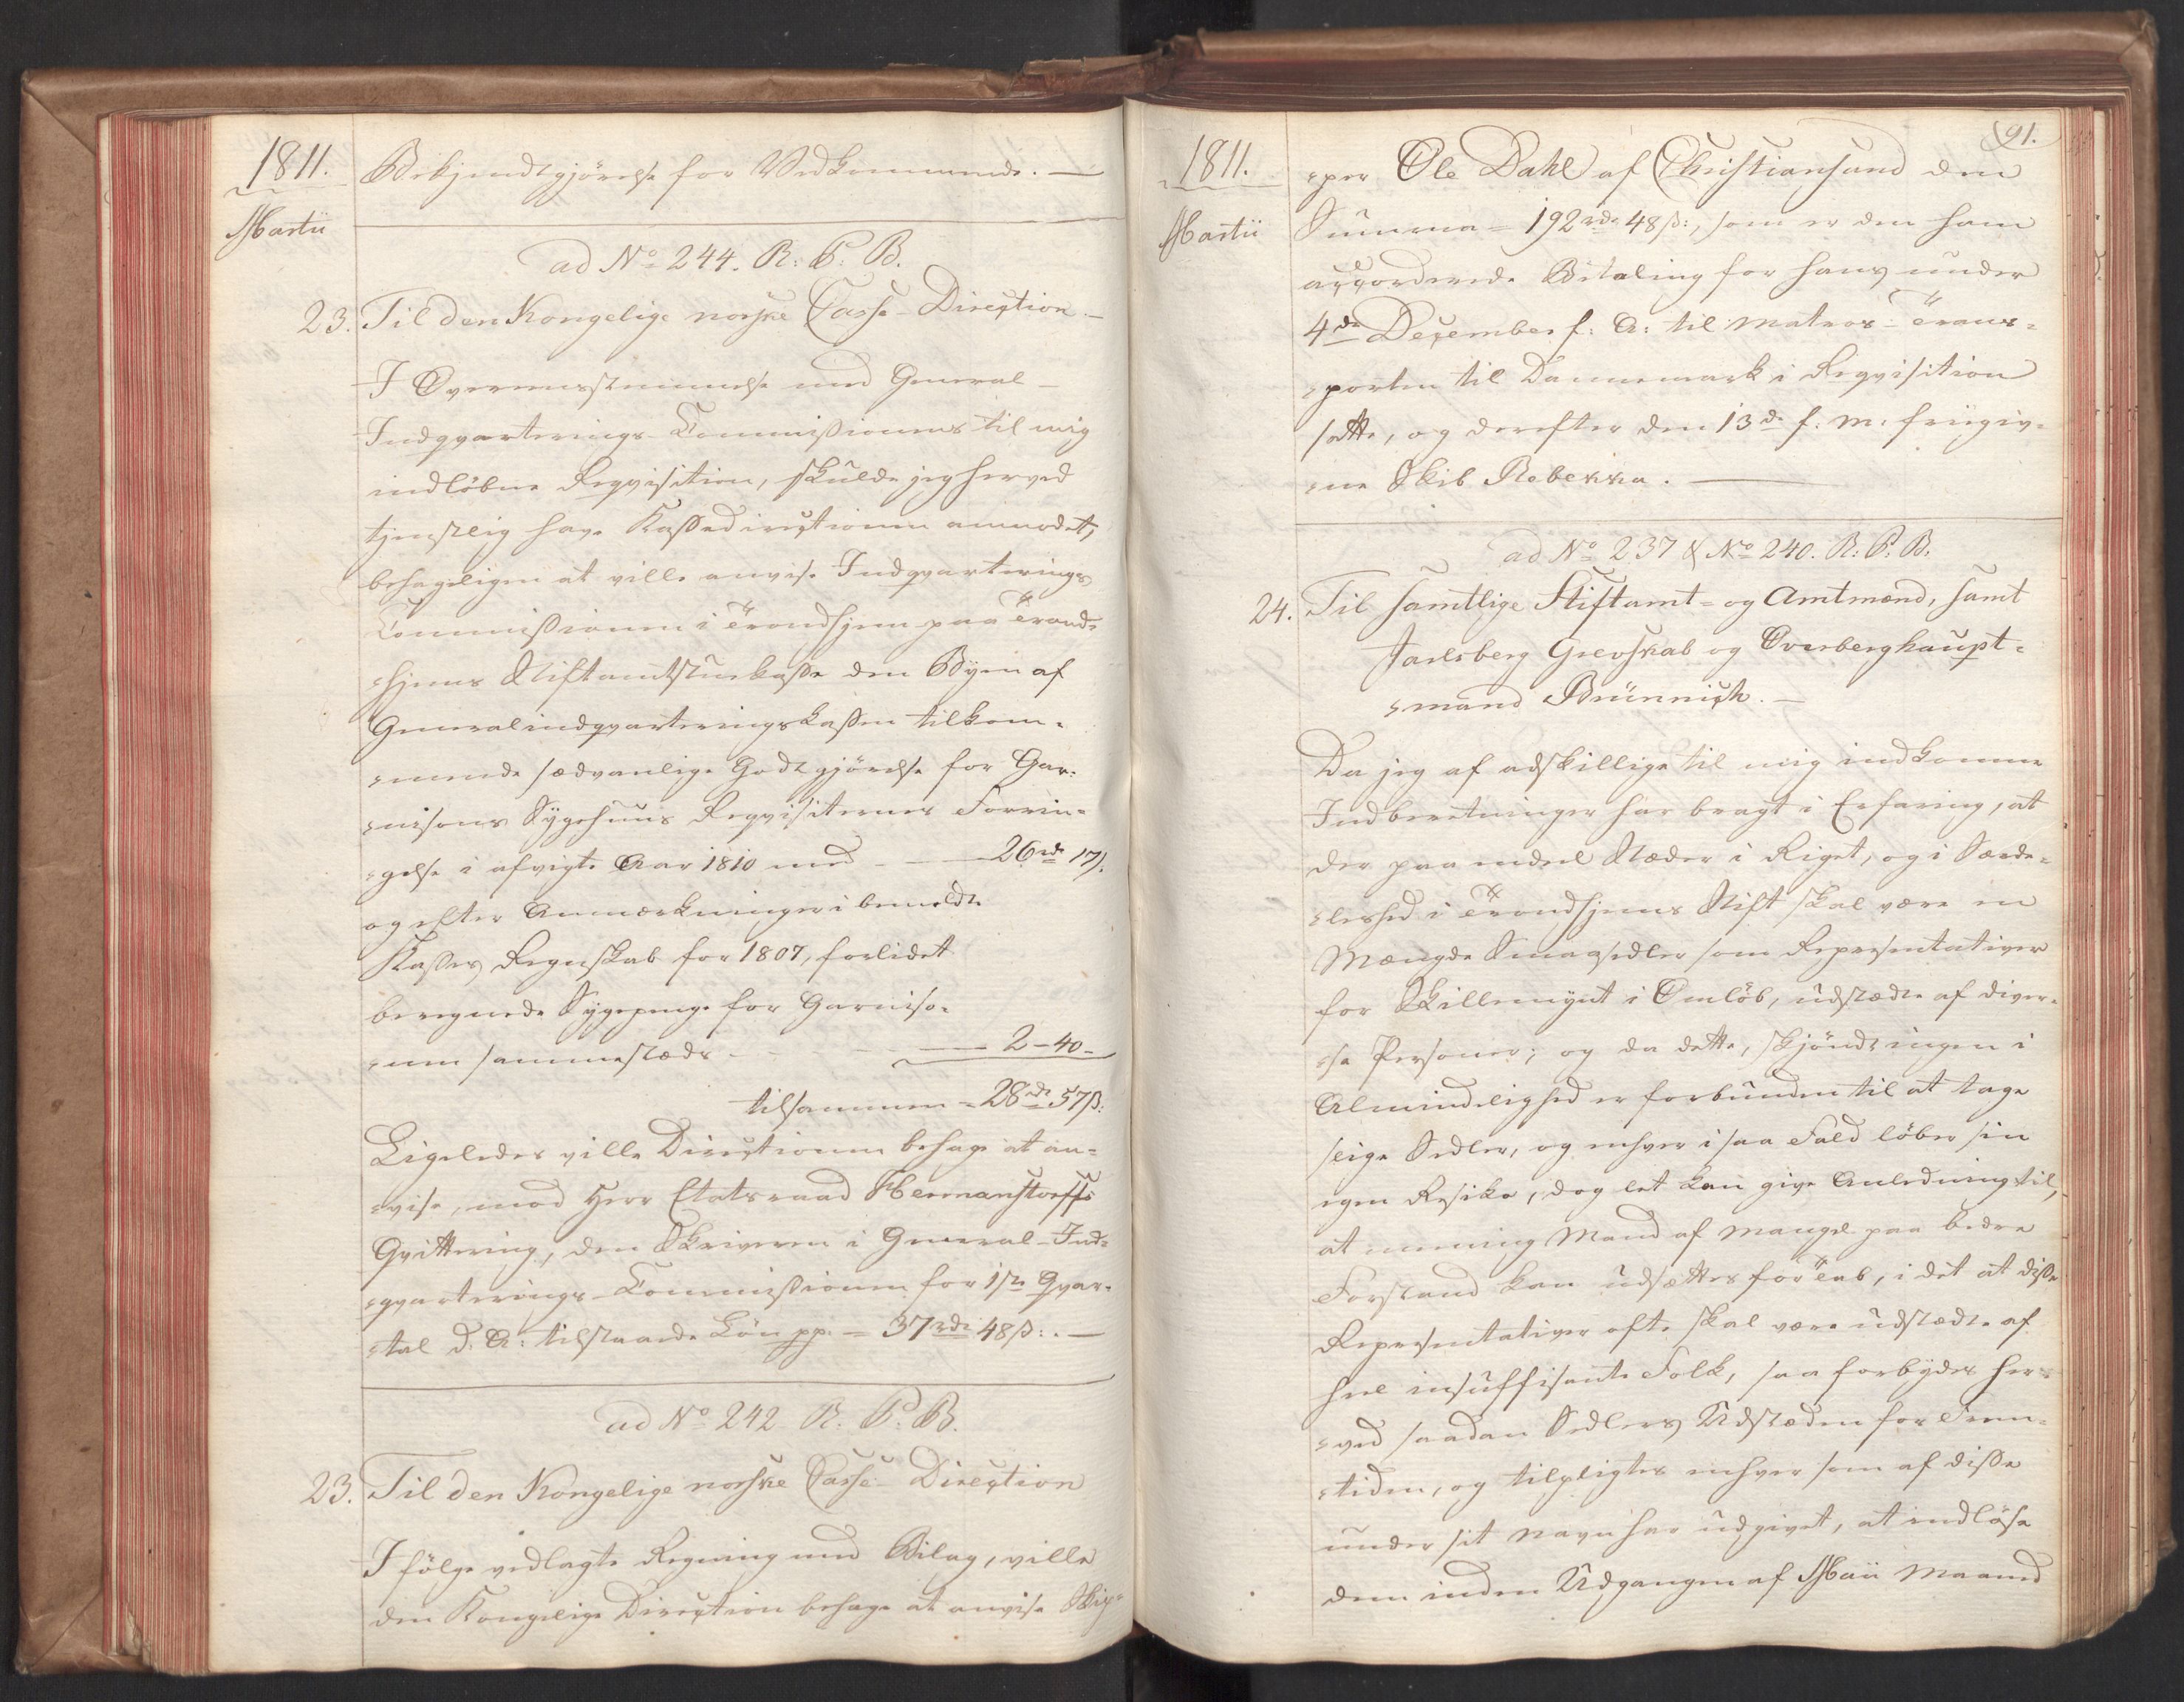 1811.
Martii
Bekjendtgjörelse for Vedkommende. —
ad No 244. R: P: B.
23. Til den Kongelige norske Casse-Direction. —
I Overeensstemmelse med General-
Indqvarterings-Commißionens til mig
indlöbne Reqvisition, skulde jeg herved
tjenstlig have Kaßedirectionen anmodet,
behageligen at ville anvise Indqvarterings
Commißionen i Trondhjem paa Trond-
hjems Stiftamtstuekaße den Byen af
Generalindqvarteringskaßen tilkom-
mende sædvanlige Godtgjörelse for Gar-
nisons Sygehuus Reqvisiternes Forrin-
gelse i afvigte Aar 1810 med — 26rd 17ß.
og efter Anmærkninger i bemeldte
Kaßes Regnskab for 1807, forlidet
beregnede Sygepenge for Garniso-
nen sammestæds — 2-40-
tilsammen - 28rd 57ß:
Ligeledes ville Directionen behage at an-
vise, mod Herr Etatsraad Hermanstorffs
Qvittering, den Skriveren i General-Ind-
qvarterings-Commißionen for 1ste Qvar-
tal d. A: tilstaaede Lön pp. = 37rd 48ß: . —
ad No 242 R. P. B.
23. Til den Kongelige norske Casse-Direction
I fölge vedlagte Regning med Bilag, ville
den Kongelige Direction behage at anvise Skip-
91.
1811.
Martii
per Ole Dahl af Christiansand den
Summa = 192rd 48ß:, som er den ham
accorderede Betaling for hans under
4de December f: A: til Matros-Trans-
porten til Dannemark i Reqvisition
satte, og derefter den 13de f. M. friegiv-
ne Skib Rebekka. —
ad No 237 & No 240. R: P: B.
24. Til samtlige Stiftamt- og Amtmænd, samt
Jarlsberg Grevskab og Overberghaupt-
mand Brünnich. —
Da jeg af adskillige til mig indkomne
Indberetninger har bragt i Erfaring, at
der paa endeel Stæder i Riget, og i Særde-
leshed i Trondhjems Stift skal være en
Mængde Smaasedler som Representativer
for Skillemynt i Omlöb, udstædte af diver-
se Personer; og da dette, skjöndt ingen i
Almindelighed er forbunden til at tage
slige Sedler, og enhver i saa Fald löber sin
egen Resiko, dog let kan give Anledning til,
at menning Mand af Mangel paa bedre
Forstand kan udsættes for Tab, i det at diße
Representativer ofte skal være udstædte af
heel insuffisante Folk, saa forbydes her-
ved saadan Sedlers Udstæden for Frem-
tiden, og tilpligtes enhver som af diße
under sit Navn har udgivet, at indlöse
dem inden Udgangen af Maii Maaned